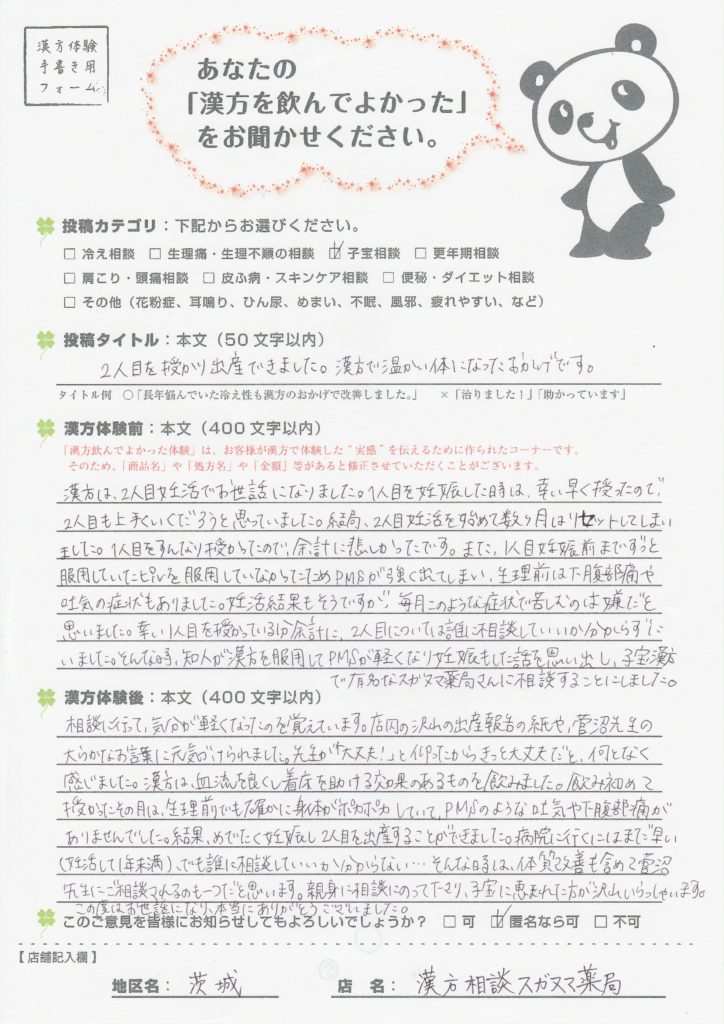 漢方体験
手書き用
フォーム
あなたの
「漢方を飲んでよかった」
をお聞かせください。
投稿カテゴリ：下記からお選びください。
□ 冷え相談 □ 生理痛・生理不順の相談 ☑ 子宝相談 □ 更年期相談
□ 肩こり・頭痛相談 □ 皮ふ病・スキンケア相談 □ 便秘・ダイエット相談
□ その他（花粉症、耳鳴り、ひん尿、めまい、不眠、風邪、疲れやすい、など）
投稿タイトル：本文（50文字以内）
2人目を授かり出産できました。漢方で温かい体になったおかげです。
タイトル例 ○「長年悩んでいた冷え性も漢方のおかげで改善しました。」 ×「治りました！」「助かっています」
漢方体験前：本文（400文字以内）
「漢方飲んでよかった体験」は、お客様が漢方で体験した"実感"を伝えるために作られたコーナーです。
そのため、「商品名」や「処方名」や「金額」等があると修正させていただくことがございます。
漢方は、2人目妊活でお世話になりました。1人目を妊娠した時は、幸い早く授ったので、
2人目も上手くいくだろうと思っていました。結局、2人目妊活を始めて数ヶ月はリセットしてしまい
ました。1人目をすんなり授かったので、余計に悲しかったです。また、1人目妊娠前までずっと
服用していたピルを服用していなかったためPMSが強く出てしまい、生理前は下腹部痛や
吐気の症状もありました。妊活結果もそうですが、毎月このような症状で苦しむのは嫌だと
思いました。幸い1人目を授かっている分余計に、2人目については誰に相談していいか分からずに
いました。そんな時、知人が漢方を服用してPMSが軽くなり妊娠もした話を思い出し、子宝漢方
で有名なスガヌマ薬局さんに相談することにしました。
漢方体験後：本文（400文字以内）
相談に行って、気分が軽くなったのを覚えています。店内の沢山の出産報告の紙や、菅沼先生の
大らかなお言葉に元気づけられました。先生が「大丈夫！」と仰ったからきっと大丈夫だと、何となく
感じました。漢方は、血流を良くし着床を助ける効果のあるものを飲みました。飲み初めて
授かったその月は、生理前でも確かに身体がポカポカしていて、PMSのような吐気や下腹部痛が
ありませんでした。結果、めでたく妊娠し2人目を出産することができました。病院に行くにはまだ早い
(妊活して1年未満)、でも誰に相談していいか分からない…そんな時は、体質改善も含めて菅沼
先生にご相談されるのも一つだと思います。親身に相談にのって下さり、子宝に恵まれた方が沢山いらっしゃいます。
この度はお世話になり、本当にありがとうございました。
このご意見を皆様にお知らせしてもよろしいでしょうか？ □ 可 ☑ 匿名なら可 □ 不可
【店舗記入欄】
地区名： 茨城 店 名： 漢方相談スガヌマ薬局